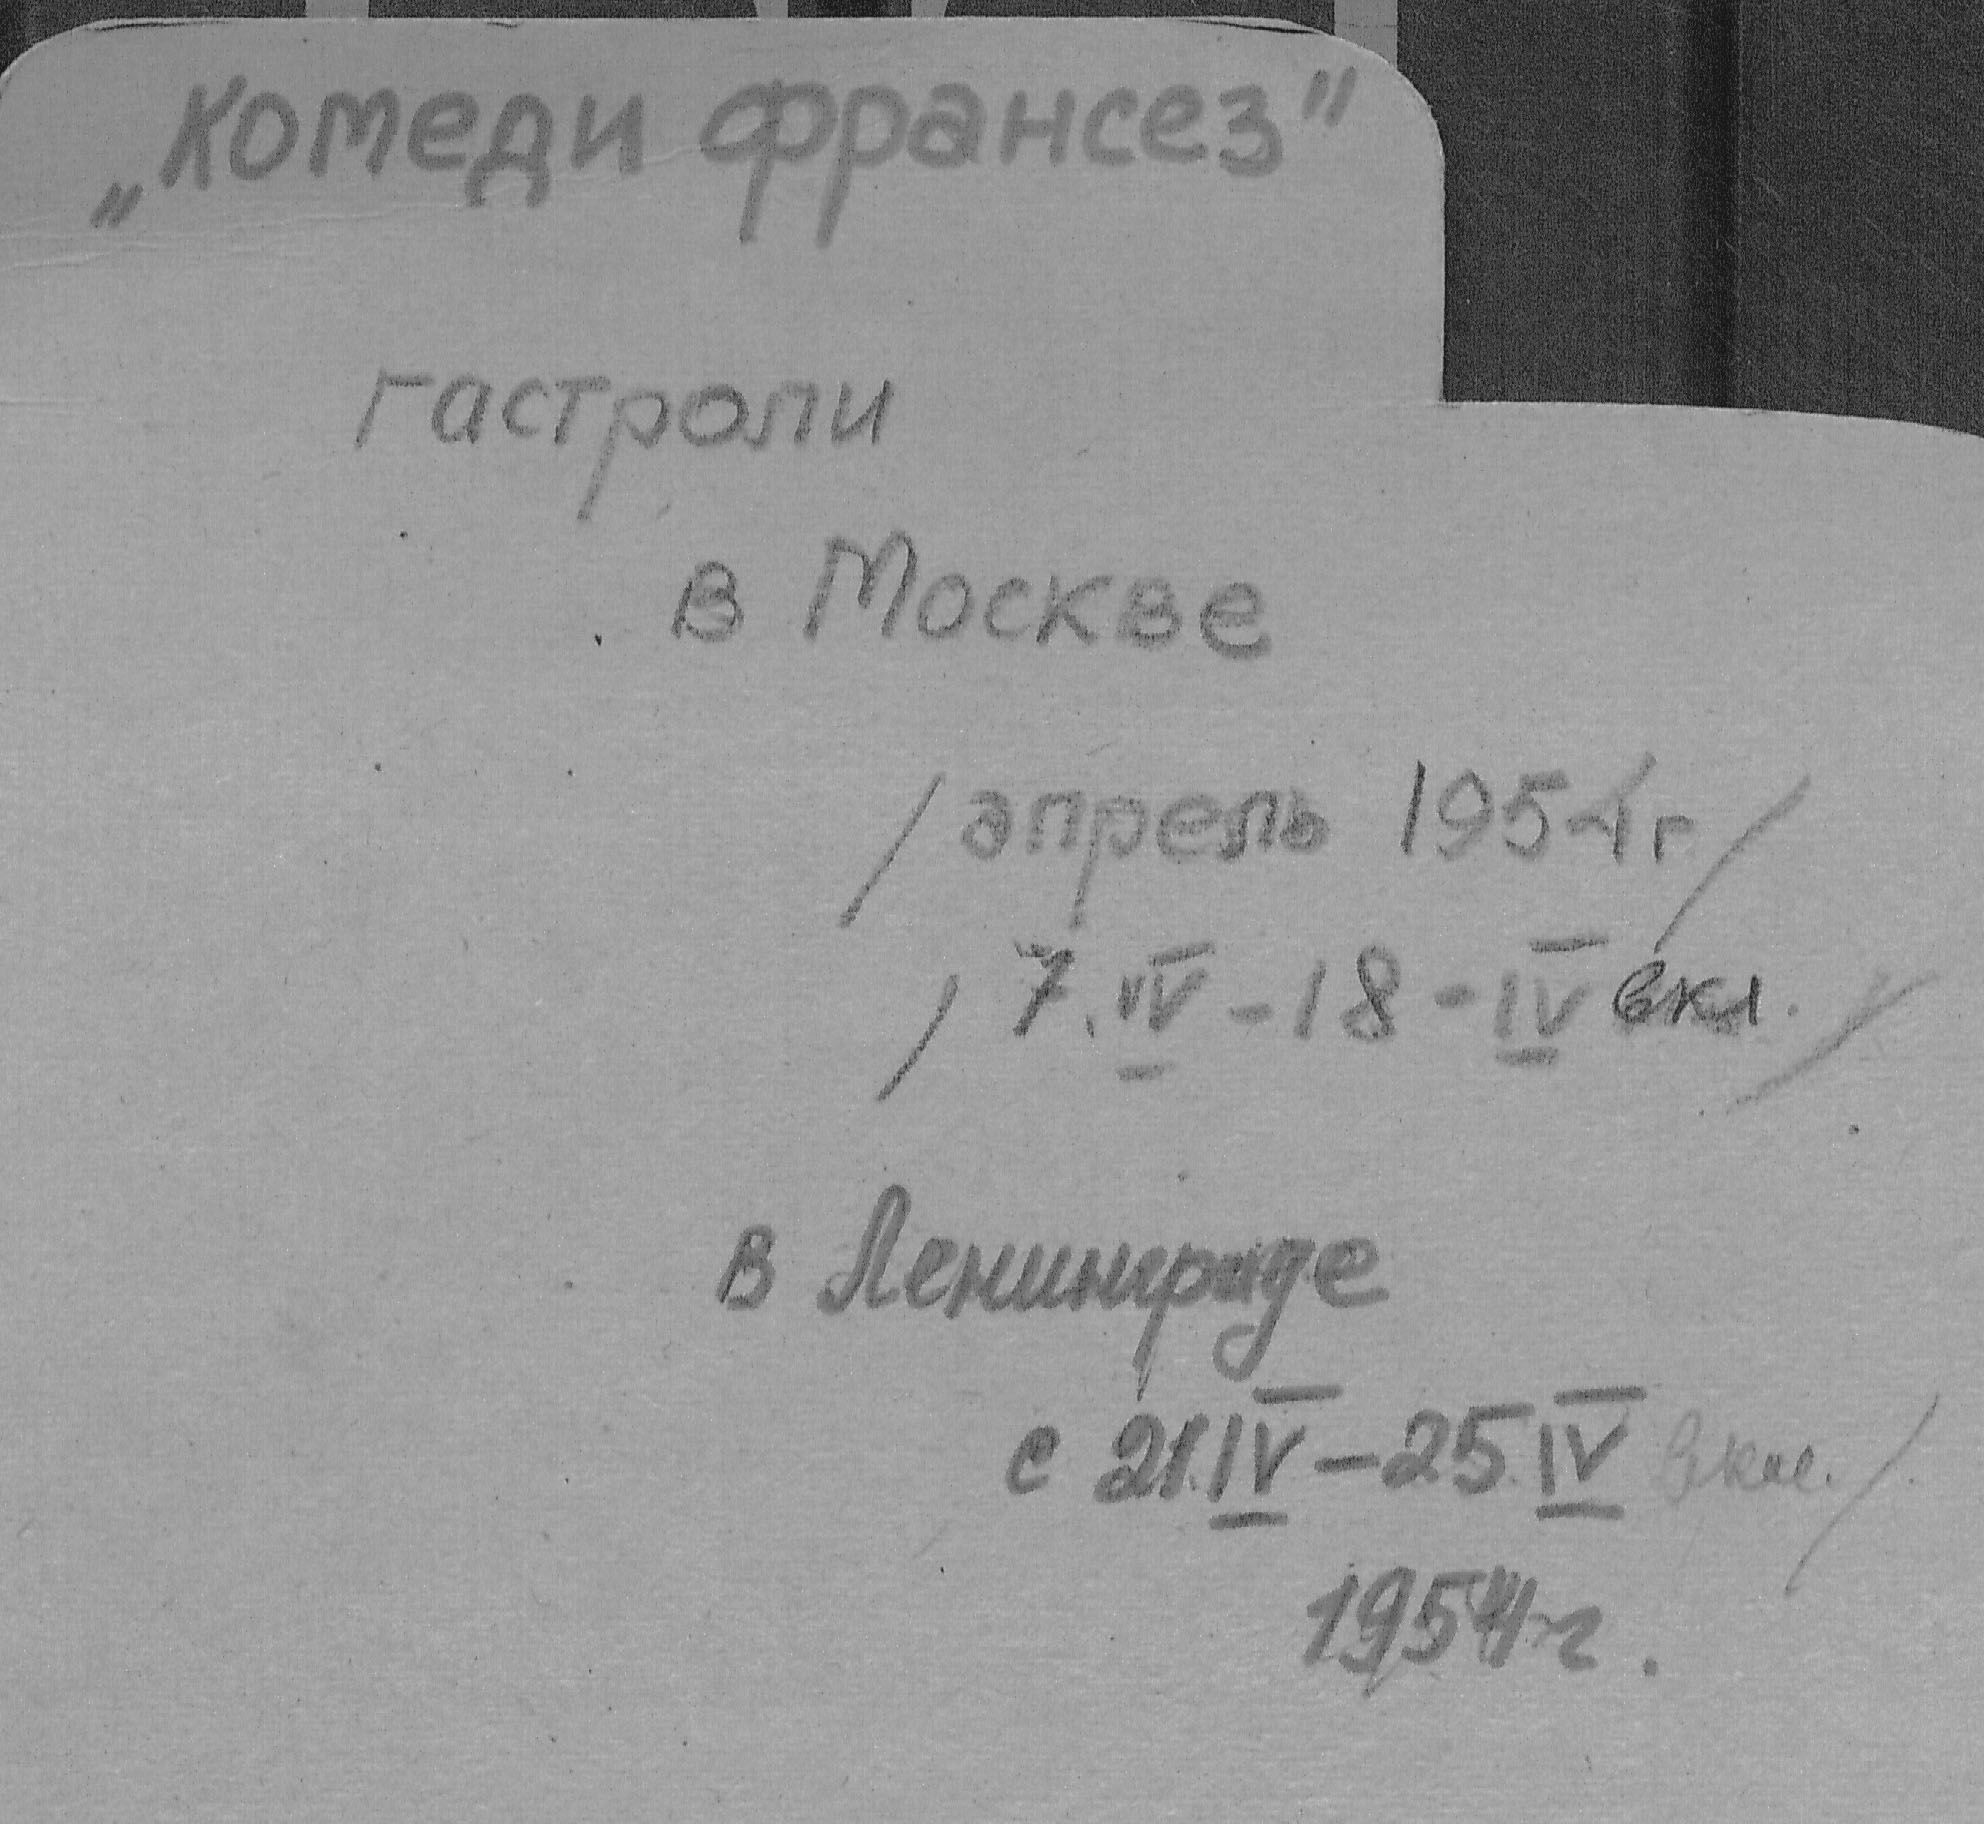 „Комеди франсез"
гастроли
в Москве
/апрель 1954г/
/7.IV-18-IV вкл./
в Ленинграде
с 21.IV-25.IV вкл./
1954г.